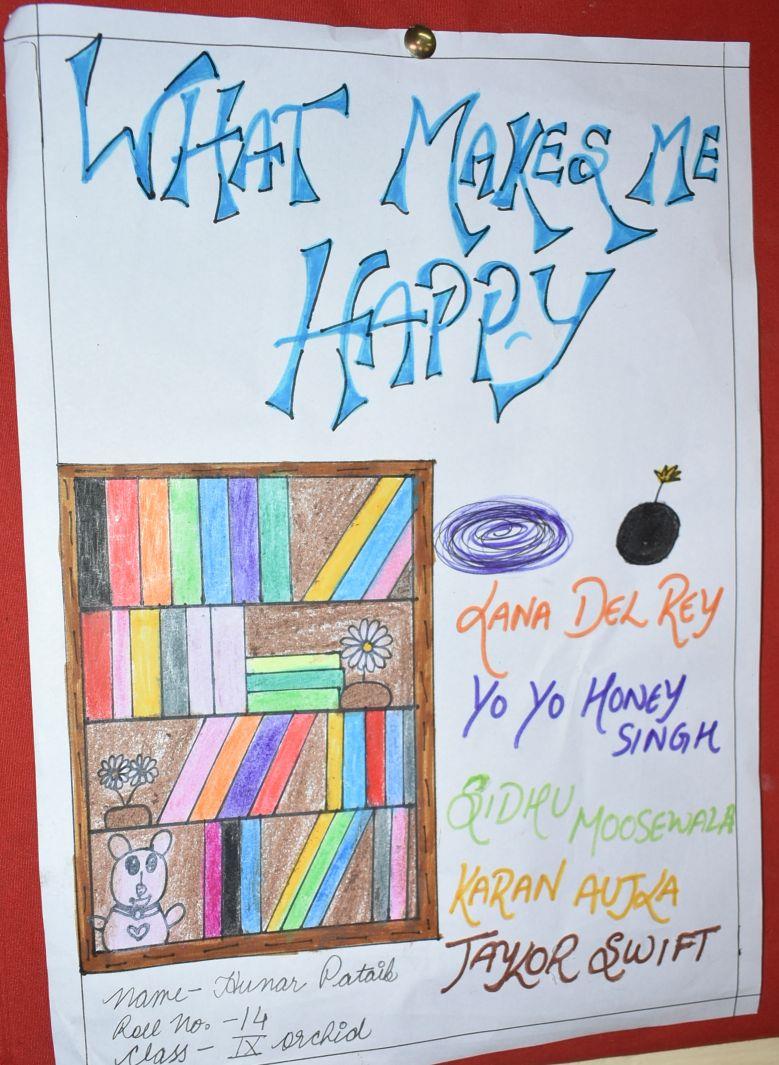 WHAT MAKES ME
HAPPY
LANA DEL REY
YO YO HONEY
SINGH
SIDHU MOOSEWALA
KARAN AUJLA
TAYLOR SWIFT
Name- Hunar
Roll No. -14
Class- IX orchid